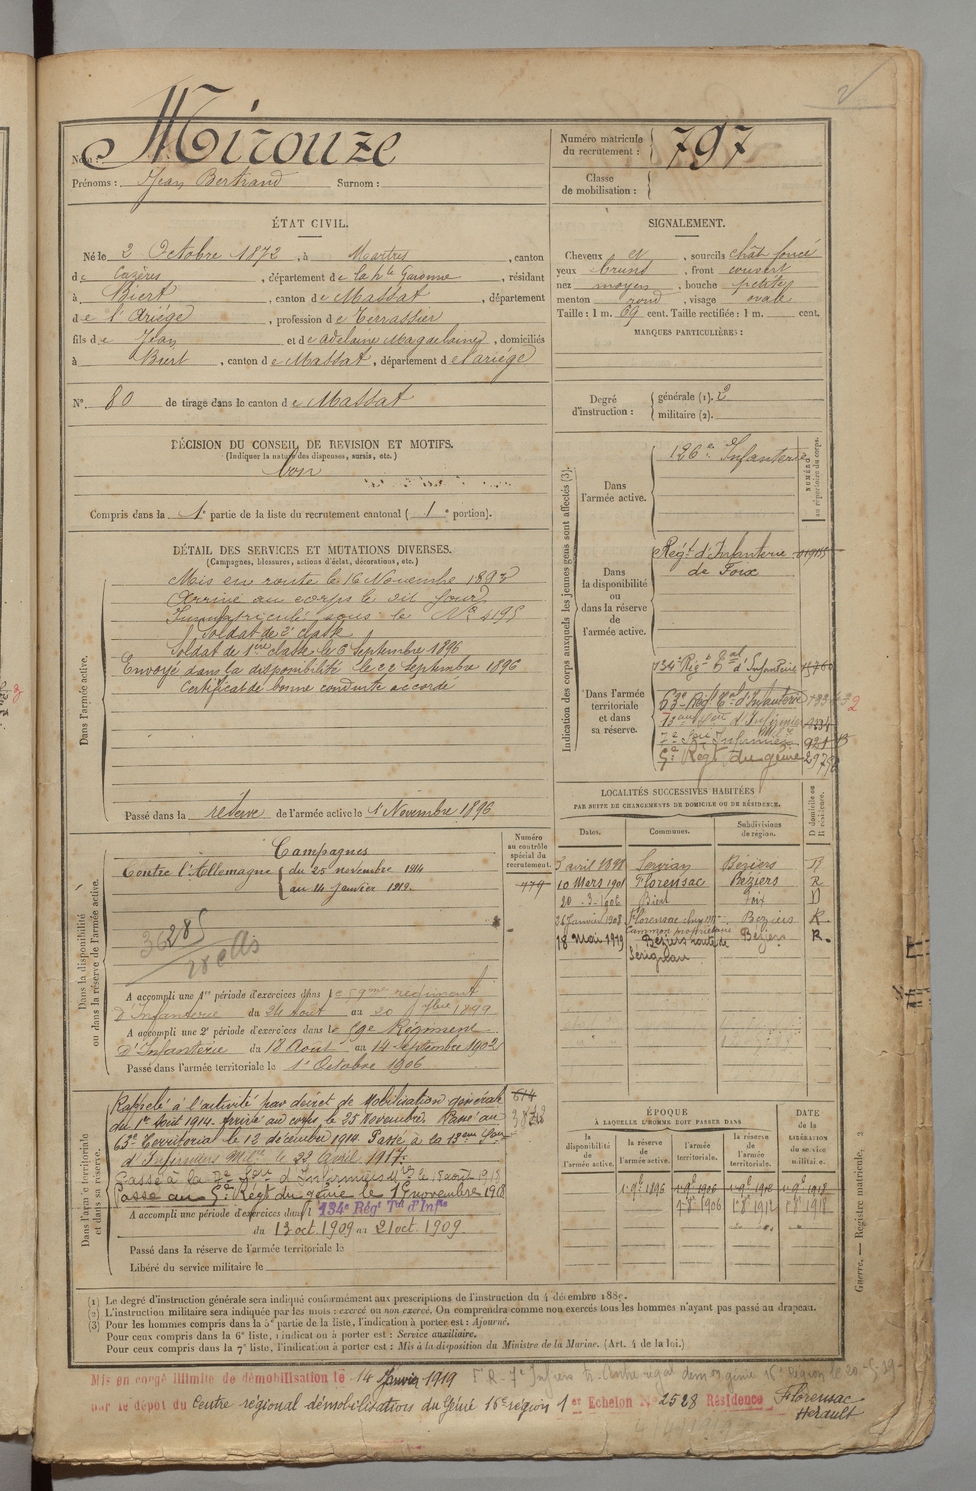 Nom : Mirouze
Prénoms : Jean Bertrand Surnom :
Numéro matricule du recrutement : 797
Classe de mobilisation :
ÉTAT CIVIL.
Né le 2 Octobre 1872, à Martres, canton
de Cazères, département de la hte Garonne, résidant
à Biert, canton de Massat, département
de l'Ariége, profession de Terrassier
fils de Jean et de Adelaine Magdelaine, domiciliés
à Biert, canton de Massat, département de l'ariége
N° 80 de tirage dans le canton de Massat
SIGNALEMENT.
Cheveux et, sourcils chât foncé
yeux bruns, front couvert
nez moyen, bouche petite
menton rond, visage ovale
Taille : 1 m. 69 cent. Taille rectifiée : 1 m. cent.
MARQUES PARTICULIÈRES :
Degré d'instruction : générale (1). 2
militaire (2).
DÉCISION DU CONSEIL DE REVISION ET MOTIFS.
(Indiquer la nature des dispenses, sursis, etc.)
bon
Compris dans la 1e partie de la liste du recrutement cantonal (1e portion).
DÉTAIL DES SERVICES ET MUTATIONS DIVERSES.
(Campagnes, blessures, actions d'éclat, décorations, etc.)
Dans l'armée active.
Mis en route le 16 Novembre 1893
Arrivé au corps le dit jour
Immatriculé sous le N° 4195
Soldat de 2e classe
Soldat de 1ère classe le 6 Septembre 1896
Envoyé dans la disponibilité le 22 Septembre 1896
Certificat de bonne conduite accordé
Passé dans la réserve de l'armée active le 1r Novembre 1896
Indication des corps auxquels les jeunes gens sont affectés (3).
NUMÉRO au répertoire du corps.
Dans l'armée active.
126e Infanterie
Dans la disponibilité ou dans la réserve de l'armée active.
Regt d'Infanterie
de Foix
Dans l'armée territoriale et dans sa réserve.
134e Régt Tal d'Infanterie
63e Regt Tal d'Infanterie
7e Son Infirmiers
5e Régt du génie
LOCALITÉS SUCCESSIVES HABITÉES
PAR SUITE DE CHANGEMENTS DE DOMICILE OU DE RÉSIDENCE.
Dates. Communes. Subdivisions de région. D domicile ou R résidence.
3 avril 1898 Servian Béziers R
10 Mars 1901 Florensac Béziers R
20-3-1906 Biert Foix D
26 Janvier 1908 Florensac Beziers R
18 Mai 1919 Béziers route de Sérignan Béziers R.
Dans la disponibilité ou dans la réserve de l'armée active.
Numéro au contrôle spécial du recrutement.
479
Campagnes
Contre l'Allemagne du 25 novembre 1914
au 14 janvier 1919.
A accompli une 1re période d'exercices dans le 59me regiment
d'Infanterie du 24 Aout au 20 7bre 1899
A accompli une 2e période d'exercices dans le Régiment
d'Infanterie du 18 Aout au 14 septembre 1902
Passé dans l'armée territoriale le 1r Octobre 1906
Dans l'armée territoriale et dans sa réserve.
Rappelé à l'activité par décret de Mobilisation générale
du 1er Aout 1914. Arrivé au corps le 25 Novembre. Passé au
63e Territorial le 12 décembre 1914. Passé à la 13eme Son
d'Infirmiers Mil. le 22 Avril 1917.
Passé à la 7e Son d'Infirmiers Mres le 1er août 1918
Passé au 5e Régt du génie le 15 novembre 1918
A accompli une période d'exercices dans l 134e Régt Tal d'Infie
du 13 oct. 1909 au 21 oct. 1909
Passé dans la réserve de l'armée territoriale le
Libéré du service militaire le
ÉPOQUE
À LAQUELLE L'HOMME DOIT PASSER DANS
la disponibilité de l'armée active. la réserve de l'armée active. l'armée territoriale. la réserve de l'armée territoriale.
DATE de la LIBÉRATION du service militaire.
1 9e 1896 1 9e 1906 1 9e 1912 1 9e 1918
1r 8e 1906 1r 8e 1912 1r 8e 1918
(1) Le degré d'instruction générale sera indiqué conformément aux prescriptions de l'instruction du 4 décembre 1889.
(2) L'instruction militaire sera indiquée par les mots : exercé ou non exercé. On comprendra comme non exercés tous les hommes n'ayant pas passé au drapeau.
(3) Pour les hommes compris dans la 5e partie de la liste, l'indication à porter est : Ajourné.
Pour ceux compris dans la 6e liste, l'indication à porter est : Service auxiliaire.
Pour ceux compris dans la 7e liste, l'indication à porter est : Mis à la disposition du Ministre de la Marine. (Art. 4 de la loi.)
Guerre. — Registre matricule. 2
Mis en congé illimité de démobilisation le 14 Janvier 1919
par le dépôt du Centre régional démobilisation du Génie 16e région 1er Echelon N° 2528 Résidence Florensac
Hérault